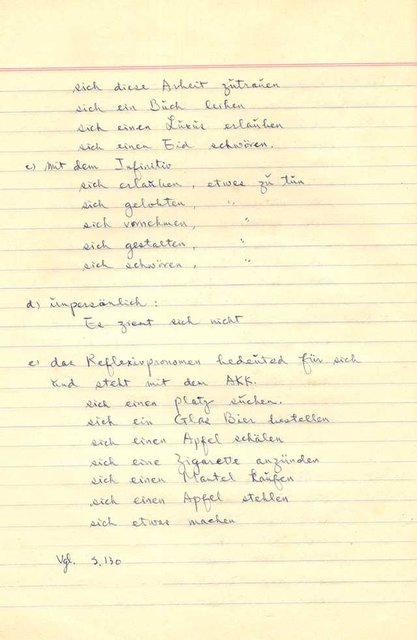 sich diese Arbeit zutrauen
sich ein Buch leihen
sich einen Luxus erlauben
sich einen Eid schwören.
c) mit dem Infinitiv
sich erlauben, etwas zu tun
sich geloben, "
sich vornehmen, "
sich gestatten, "
sich schwören, "
d) unpersönlich :
Es ziemt sich nicht
e) das Reflexivpronomen bedeuted für sich
und steht mit dem AKK.
sich einen Platz suchen.
sich ein Glas Bier bestellen
sich einen Apfel schälen
sich eine Zigarette anzünden
sich einen Mantel kaufen
sich einen Apfel stehlen
sich etwas machen
Vgl. S. 130